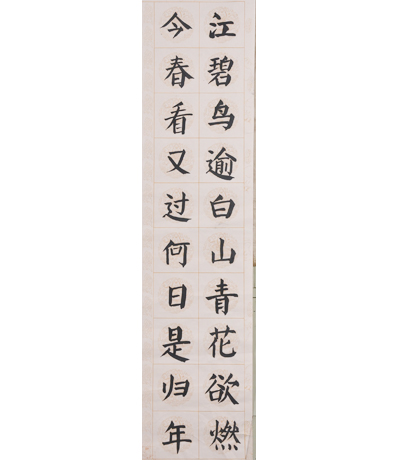 江碧鸟逾白山青花欲燃
今春看又过何日是归年